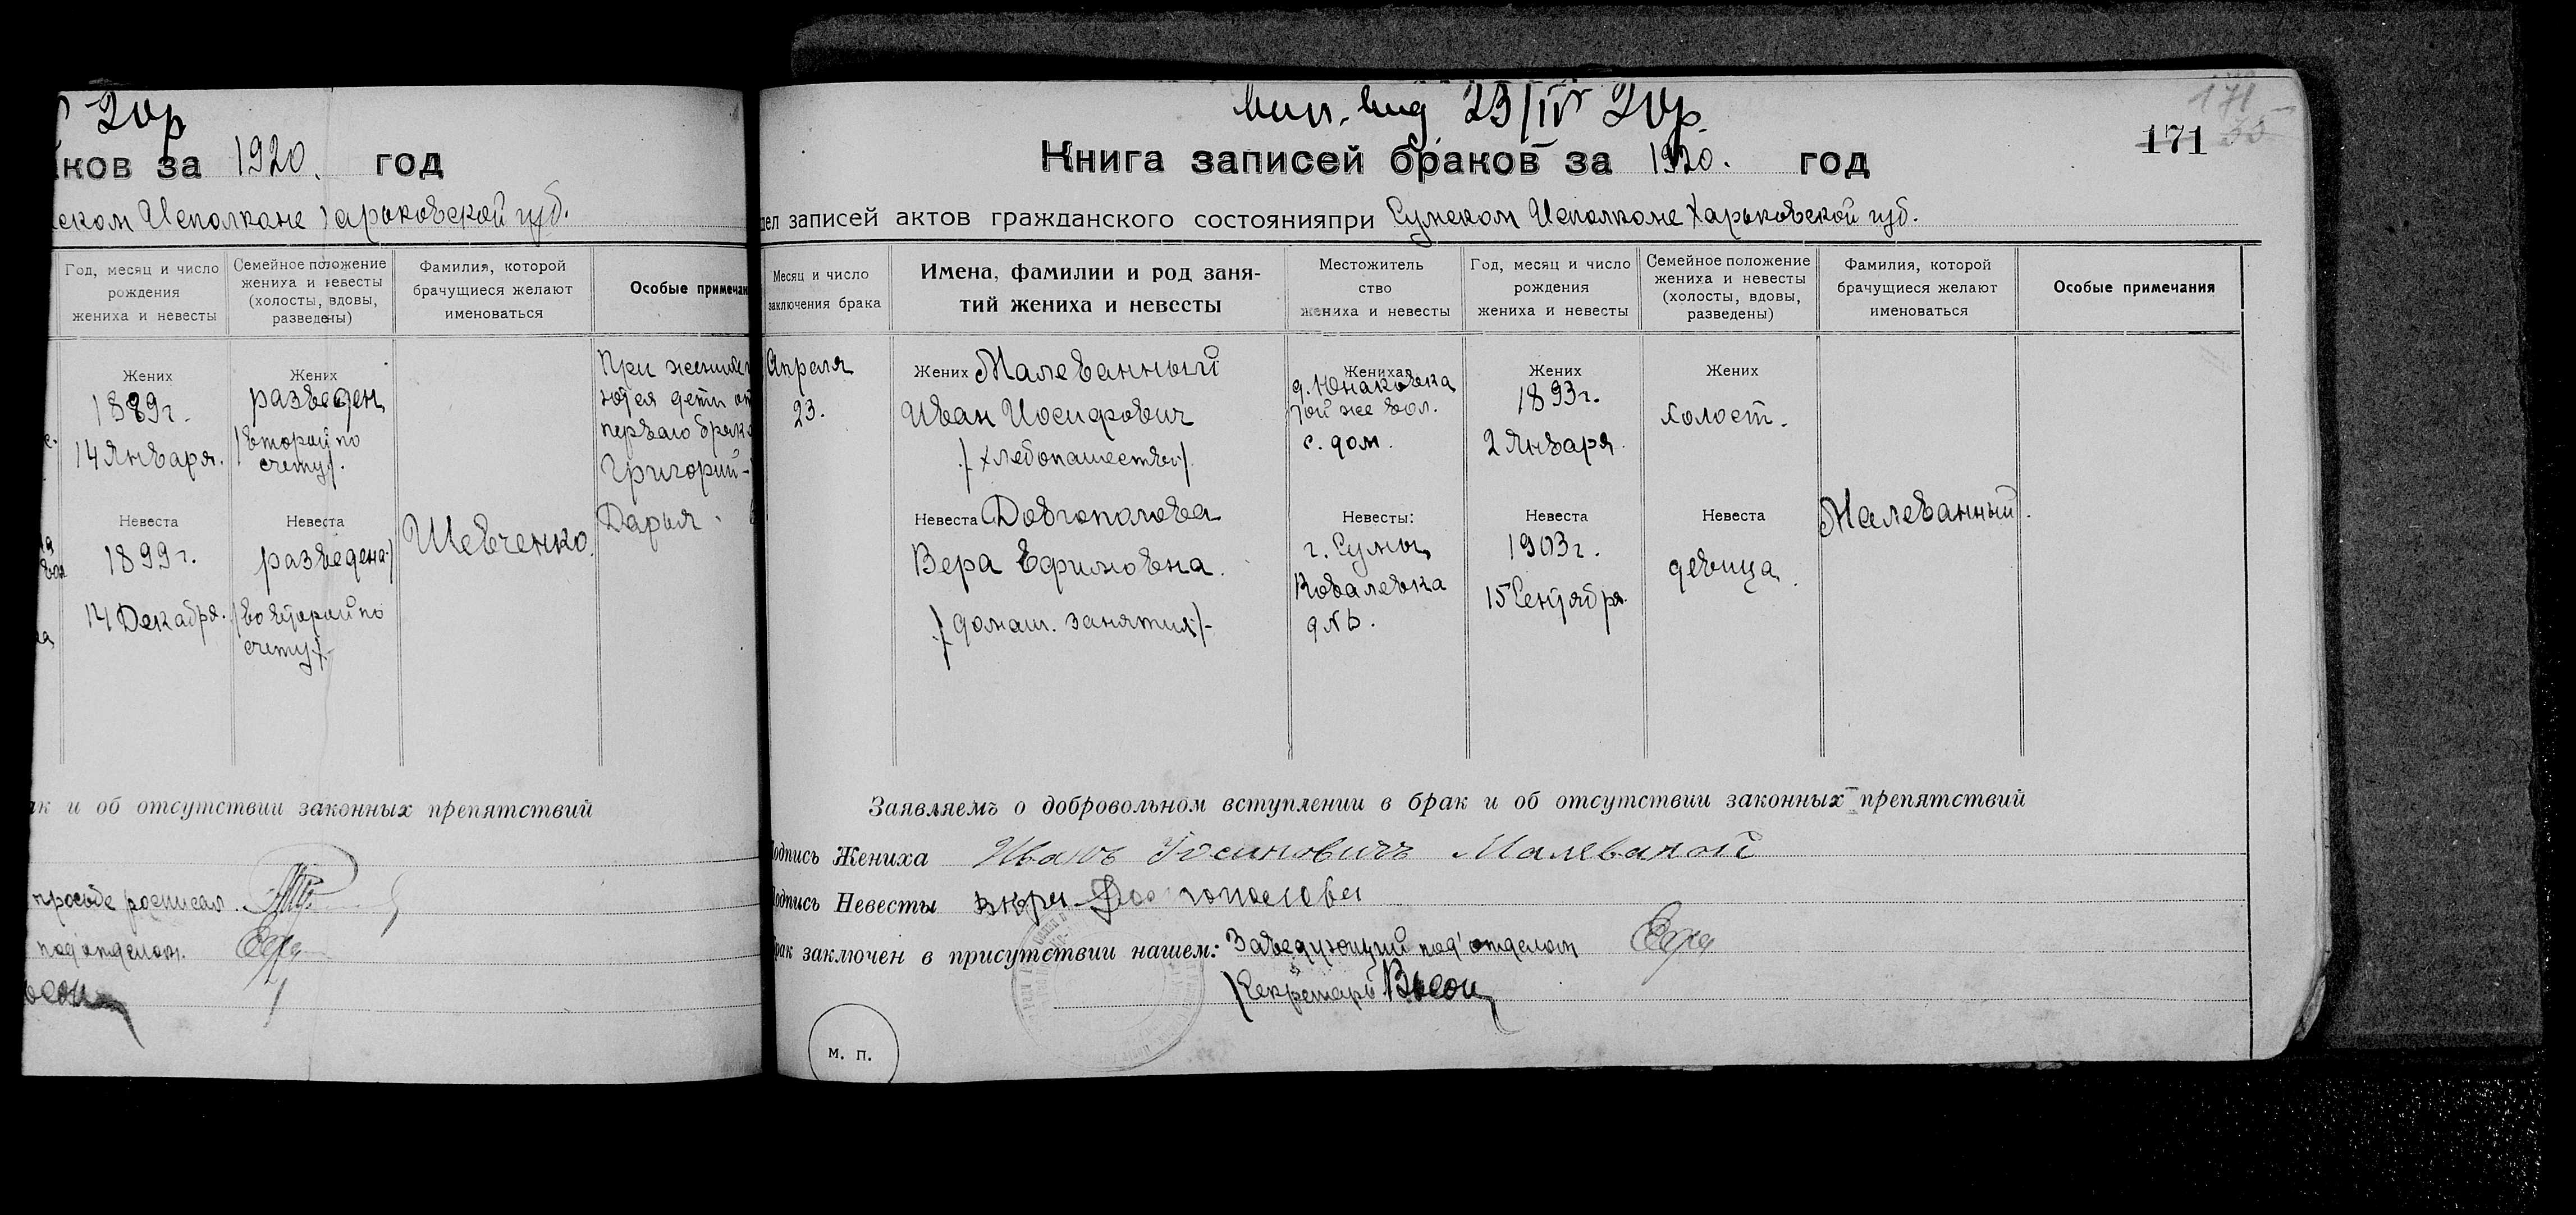 20р
ков за 1920. год
ском Исполкоме Харьковской губ.
Год, месяц и число
рождения
жениха и невесты
Семейное положение
жениха и невесты
(холосты, вдовы,
разведены)
Фамилия, которой
брачущиеся желают
именоваться
Особые примечан
Жених
1889 г.
14 Января.
Жених
разведен
/второй по
счету/.
При жених
ются дети от
перваго брака
Григорий-
Дарья.
Невеста
1899 г.
14 Декабря.
Невеста
разведена/
/во второй по
счету/-
Шевченко.
ак и об отсутствии законных препятствий
просьбе росписал.
под'отделом.
Вып. вид 23/IV 20р.
171
171
Книга записей браков за 1920. год
дел записей актов гражданского состоянияпри Сумском Исполкоме Харьковской губ.
Месяц и число
заключения брака
Имена, фамилии и род заня-
тий жениха и невесты
Местожитель
ство
жениха и невесты
Год, месяц и число
рождения
жениха и невесты
Семейное положение
жениха и невесты
(холосты, вдовы,
разведены)
Фамилия, которой
брачущиеся желают
именоваться
Особые примечания
Апреля
23.
Жених Малеванный
Иван Иосифович
/хлебопашество/
Жениха
д. Юнаковка
той же вол.
с. дом.
Жених
1893 г.
2 Января.
Жених
холост.
Невеста Довгополова
Вера Ефимовна.
/домаш. занятия/-
Невесты:
г. Сумы
Ковалевка
д №
Невеста
1903 г.
15 Сентября.
Невеста
девица.
Малеванный.
Заявляемъ о добровольном вступлении в брак и об отсутствии законных препятствий
Подпись Жениха Иванъ Иосиповичъ Малеваной
Подпись Невесты Вкра Довгополова
Брак заключен в присутствии нашем: Заведующий под'отделом
Секретарь
м. п.